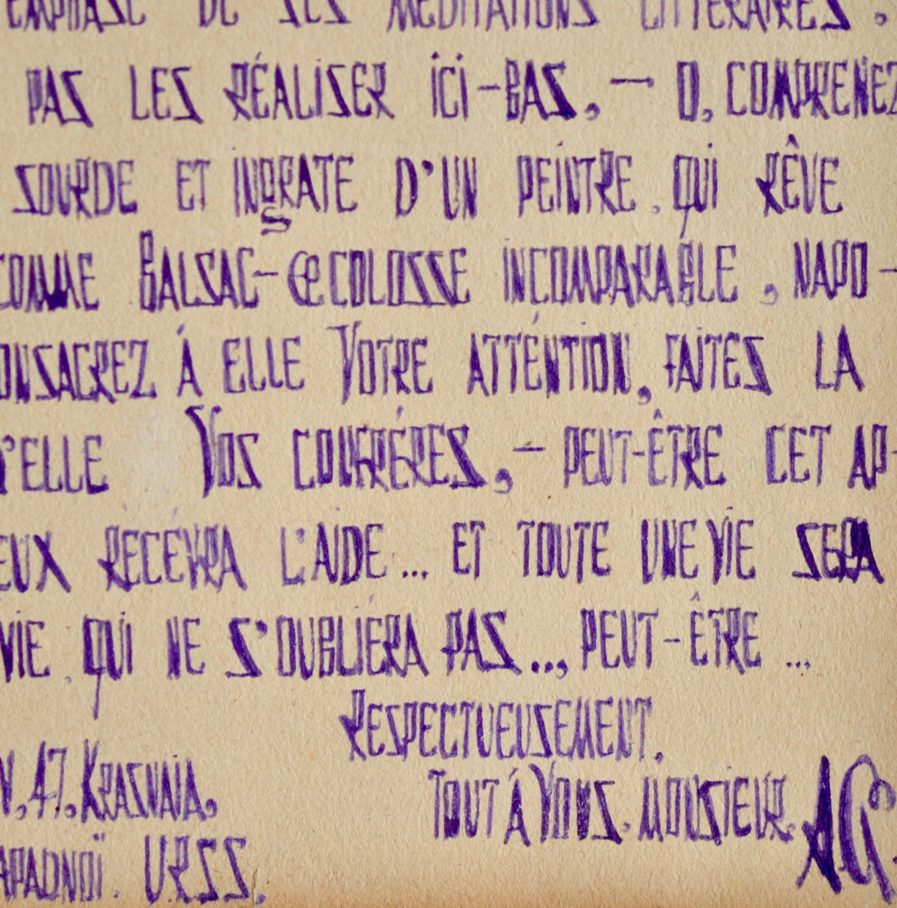 EMPHASE DE SES MÉDITATIONS LITTÉRAIRES.
PAS LES RÉALISER ICI-BAS, — O, COMPRENEZ
SOURDE ET INGRATE D'UN PEINTRE, QUI RÊVE
COMME BALSAC-CE COLOSSE INCOMPARABLE, NAPO-
ONSACREZ Á ELLE VOTRE ATTÉNTION, FAITES LA
'ELLE VOS CONFRÉRES, — PEUT-ÊTRE CET AP-
EUX RECEVRA L'AIDE... ET TOUTE UNE VIE SERA
VIE, QUI NE S'OUBLIÉRA PAS..., PEUT-ÊTRE...
RESPECTUEUSEMENT.
TOUT Á VOUS, MONSIEUR, AG.
N, 47, KRASNAIA,
APADNOÏ. URSS.